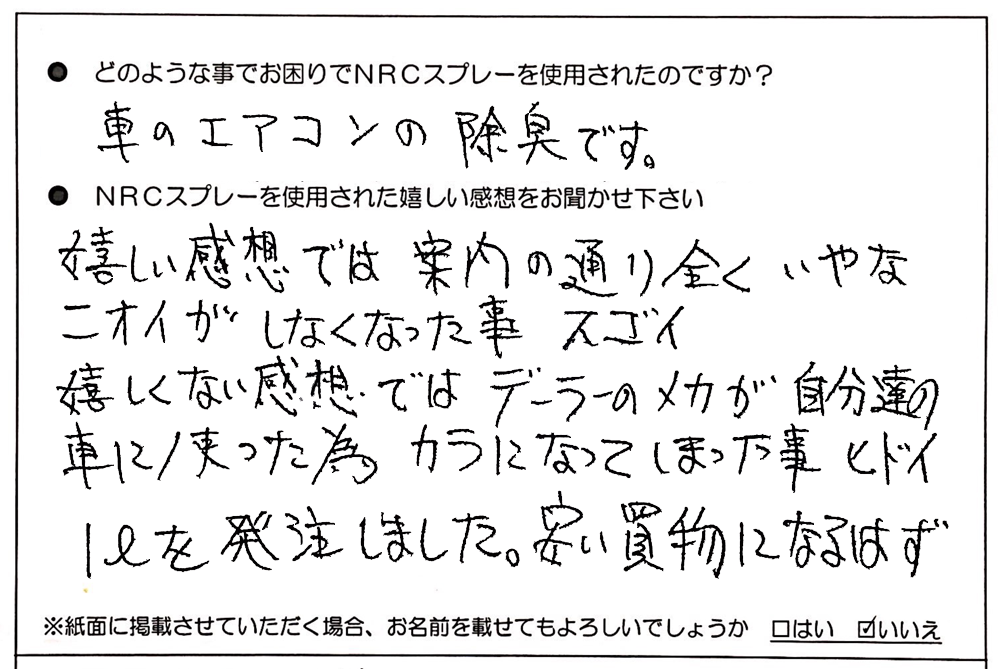 ● どのような事でお困りでNRCスプレーを使用されたのですか?
車のエアコンの 除臭です。
● NRCスプレーを使用された嬉しい感想をお聞かせ下さい
嬉しい感想では 案内の通り全く いやな
ニオイが しなくなった事 スゴイ
嬉しくない感想では デーラーのメカが 自分達の
車に使った為 カラになってしまった事 ヒドイ
1ℓを発注しました。安い買物になるはず
※紙面に掲載させていただく場合、お名前を載せてもよろしいでしょうか □はい ☑いいえ